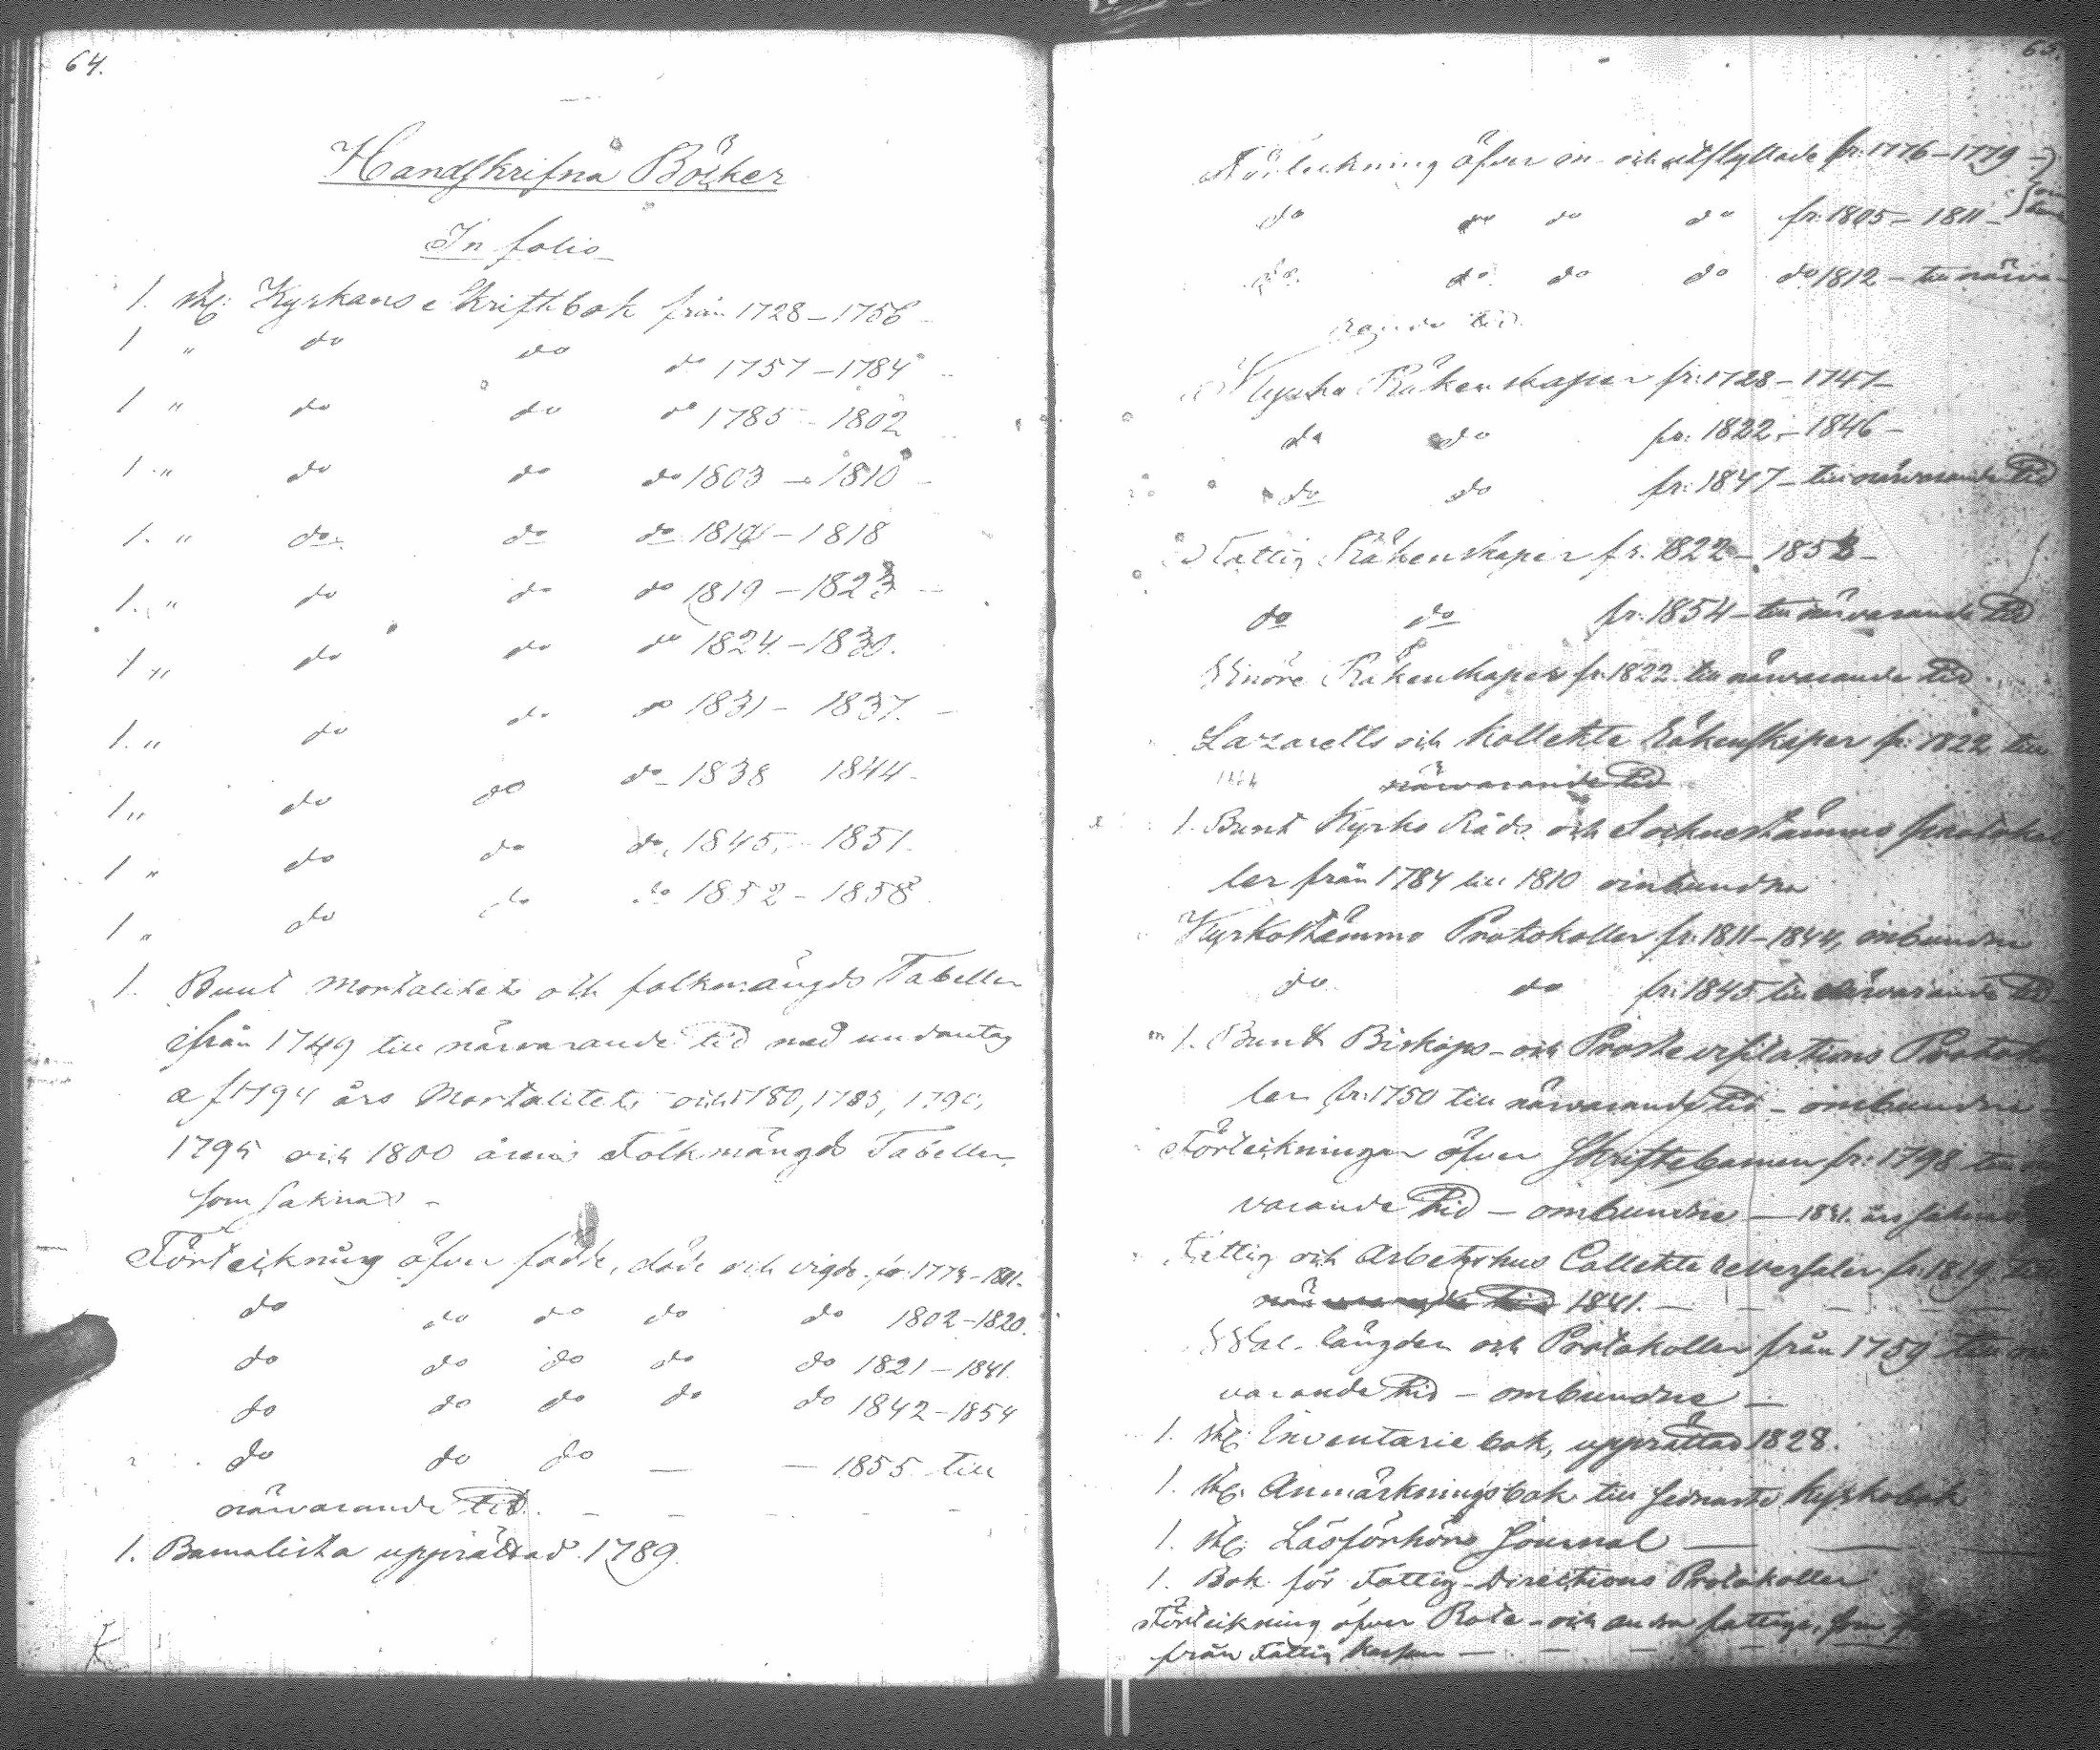 64.
Handskrifna Böcker
In folio
1. st: Kyrkans Skriftbok från 1728–1756
1 " do do do 1757–1784
1 " do do do 1785–1802
1 " do do do 1803–1810
1. " do do do 1811–1818
1. " do do do 1819–1823
1 " do do do 1824–1830.
1. " do do do 1831–1837.
1 " do do do 1838 1844
1 " do do do 1845–1851.
1 " do do do 1852–1858
1. Bunt Mortalitets och folkmängds Tabeller
ifrån 1749 till närvarande tid med undantag
af 1794 års Mortalitets och 1780, 1785, 1790,
1795 och 1800 årens Folkmängds Tabeller,
som saknas –
Förteckning öfver födde, döde och vigde fr: 1774–1801.
do do do do do 1802–1820.
do do do do do 1821–1841.
do do do do do 1842–1854
do do do — — 1855 till
närvarande tid.
1. Bamalista upprättad 1789.
65.
Förteckning öfver in- och utflyttade fr: 1776–1779
do do do do fr: 1805–1811
do do do do do 1812 – till närva-
rande tid.
Kyrko Räkenskaper fr: 1728–1747–
do do fr: 1822–1846–
do do fr: 1847– till närvarande tid
Fattig Räkenskaper fr. 1822–1853–
do do fr: 1854– till närvarande tid
Räkenskaper fr: 1822 till närvarande tid
Lazaretts och Kollekte Räkenskaper fr: 1822 till
närvarande tid
1. Bunt Kyrko Råds och Socknestämmo protokol
ler från 1784 till 1810 oinbundna
Kyrkostämmo Protokoller fr: 1811–1844, inbundne
do do fr: 1845 till närvarande tid
1. Bunt Biskops- och Prostevisitations Protokol
ler fr: 1750 till närvarande tid – oinbundne
Förteckningar öfver Skriftebarnen fr: 1798 till
varande tid – oinbundne – 1841. års saknas
Fattig och Arbetshus Collekte reversaler fr: 1819 till
närvarande tid 1841.
längder och Protokoller från 1759 till
varande tid – oinbundne –
1. st: Inventarie bok, upprättad 1828.
1. st: Anmärkningsbok till senaste Kyrkobok
1. st: Läsförhörs Journal —
1. Bok för Fattig-Directions Protokoller
Förteckning öfver Rote- och andra fattiga, som
från Fattig Kassan —